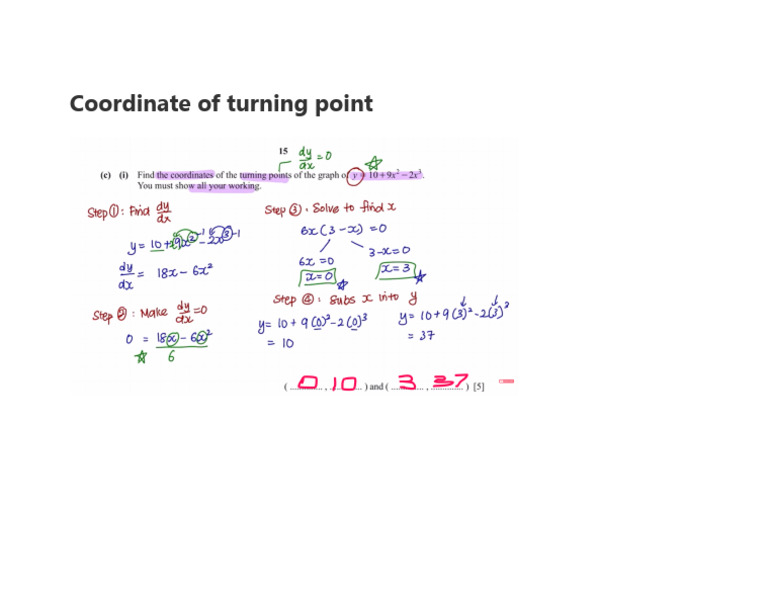 Coordinate of turning point
15 dy/dx = 0
(c) (i) Find the coordinates of the turning points of the graph of y = 10 + 9x² − 2x³.
You must show all your working.
Step ① : Find dy/dx
y = 10 + 9x² − 2x³
dy/dx = 18x − 6x²
Step ② : Make dy/dx = 0
0 = 18x − 6x²
6
Step ③ : Solve to find x
6x(3 − x) = 0
6x = 0
x = 0
3 − x = 0
x = 3
Step ④ : Subs x into y
y = 10 + 9(0)² − 2(0)³
= 10
y = 10 + 9(3)² − 2(3)³
= 37
( 0 , 10 ) and ( 3 , 37 ) [5]